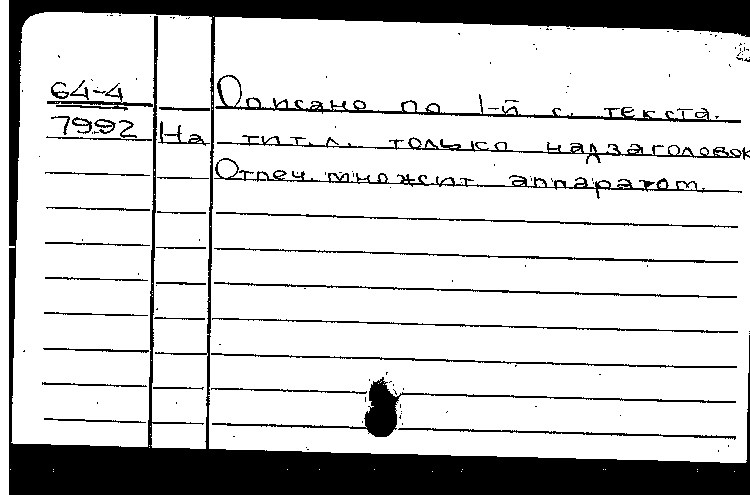 25
64-4 Описано по 1-й с. текста.
7992 На тит. л. только надзаголовок
Отпеч. множит аппаратом.